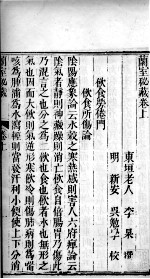 蘭室秘藏卷上
東垣老人 李杲 撰
明 新安 吳勉學 校
飲食勞倦門
飲食所傷論
陰陽應象論云水穀之寒熱感則害人六腑痺論云
陰氣者靜則神藏躁則消亡飲食自倍腸胃乃傷此
乃混言之也分之為二飲也食也飲者水也無形之
氣也因而大飲則氣逆形寒飲冷則傷肺病則為喘
咳為腫滿為水瀉輕則當發汗利小便使上下分消
蘭室秘藏 卷上